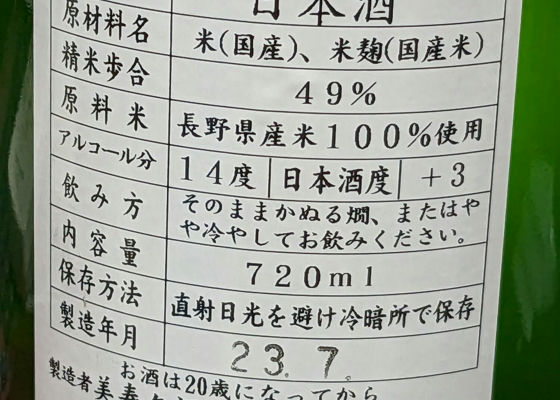 原材料名 日本酒
米(国産)、米麹(国産米)
精米歩合 49%
原料米 長野県産米100%使用
アルコール分 14度 日本酒度 +3
飲み方 そのままかぬる燗、またはや
や冷やしてお飲みください。
内容量 720ml
保存方法 直射日光を避け冷暗所で保存
製造年月 23.7.
お酒は20歳になってから
製造者